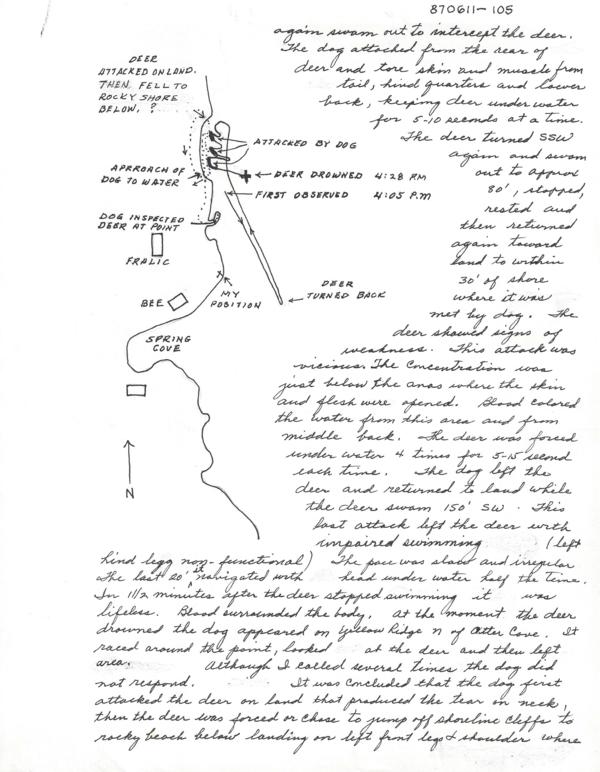 870611-105
again swam out to intercept the deer.
The dog attacked from the rear of
deer and tore skin and muscle from
tail, hind quarters and lower
back, keeping deer under water
for 5-10 seconds at a time.
The deer turned SSW
again and swam
out to approx
80', stopped,
rested and
then returned
again toward
land to within
30' of shore
where it was
met by dog. The
deer showed signs of
weakness. This attack was
vicious. The concentration was
just below the anas where the skin
and flesh were opened. Blood colored
the water from this area and from
middle back. The deer was forced
under water 4 times for 5-15 second
each time. The dog left the
deer and returned to land while
the deer swam 150' SW. This
last attack left the deer with
impaired swimming (left
hind legg non-functional) The pace was slow and irregular
The last 20' navigated with head under water half the time.
In 1 1/2 minutes after the deer stopped swimming it was
lifeless. Blood surrounded the body. At the moment the deer
drowned the dog appeared on Yellow Ridge N of Otter Cove. It
raced around the point, looked at the deer and then left
area. Although I called several times the dog did
not respond. It was concluded that the dog first
attacked the deer on land that produced the tear in neck,
then the deer was forced or chose to jump off shoreline cliffs to
rocky beach below landing on left front legs & shoulder where
DEER
ATTACKED ON LAND.
THEN FELL TO
ROCKY SHORE
BELOW. ?
ATTACKED BY DOG
APRROACH OF
DOG TO WATER
DEER DROWNED 4:28 P.M
FIRST OBSERVED 4:05 P.M
DOG INSPECTED
DEER AT POINT
FRALIC
DEER
TURNED BACK
MY
POSITION
BEE
SPRING
COVE
N